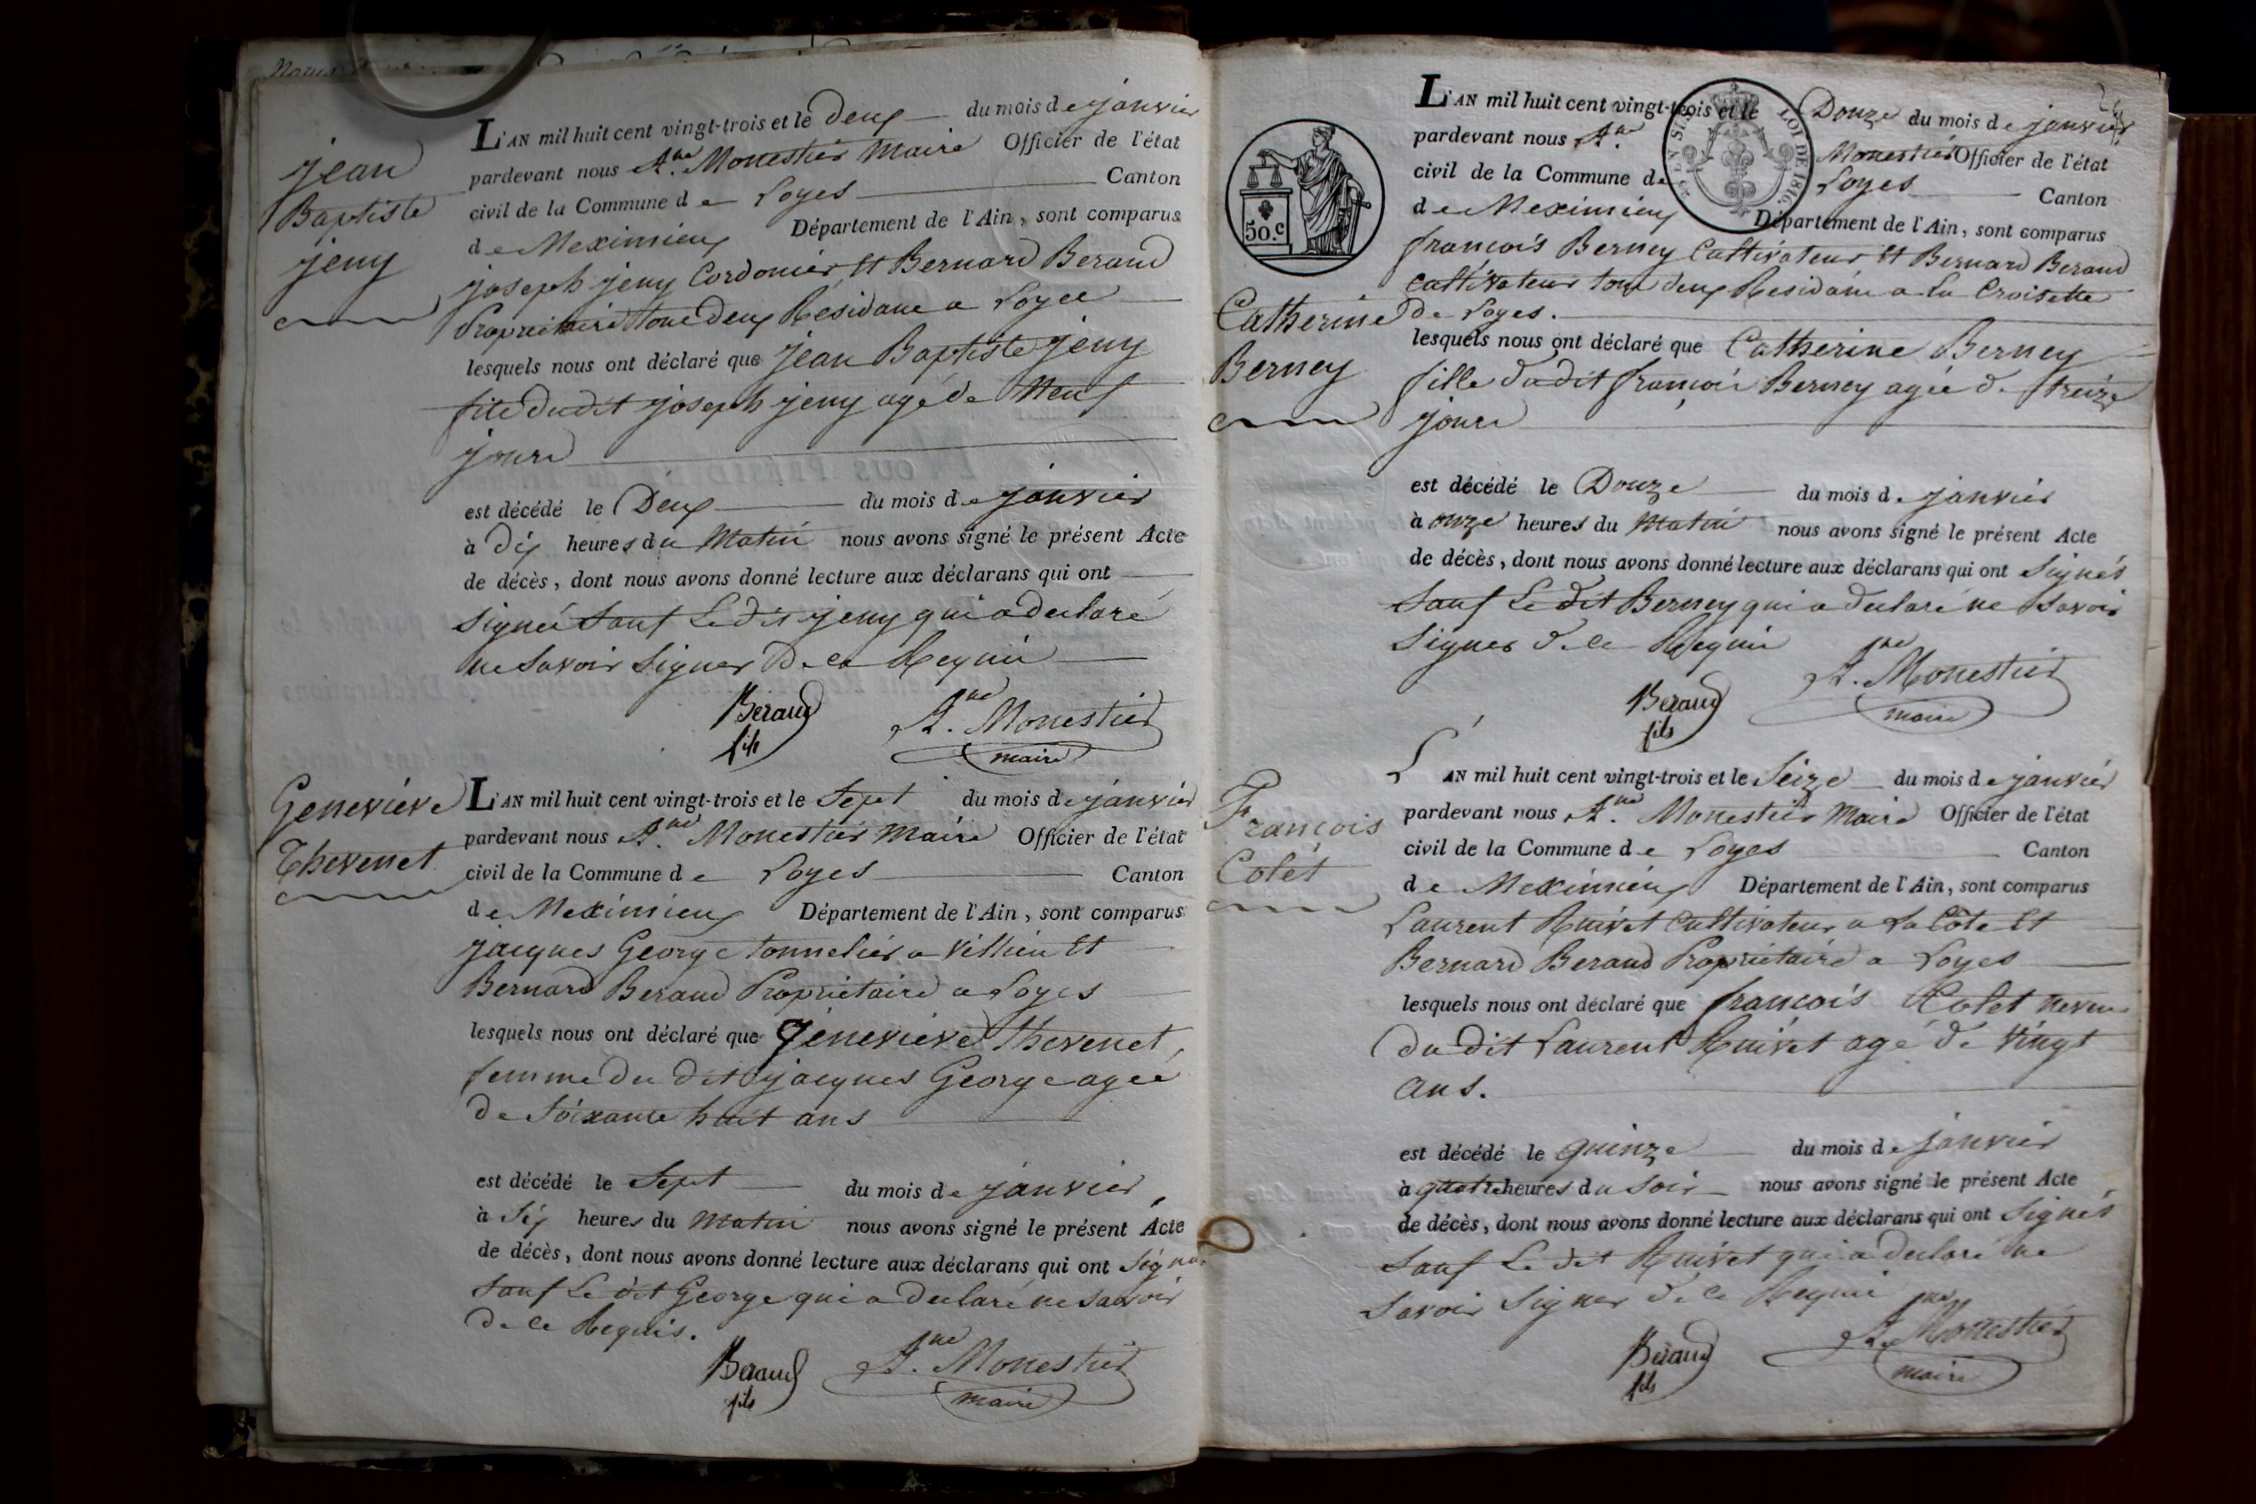 jean
Baptiste
jeny
L'AN mil huit cent vingt-trois et le Deux du mois de janvier
pardevant nous A.ne Monestier Maire Officier de l'état
civil de la Commune de Loyes Canton
de Meximieux Département de l'Ain, sont comparus
joseph jeny Cordonier et Bernard Beraud
Proprietaire tous deux Résidant a Loyes
lesquels nous ont déclaré que jean Baptiste jeny
fils dudit joseph jeny agé de Neuf
jours
est décédé le Deux du mois de janvier
à dix heures du Matin nous avons signé le présent Acte
de décès, dont nous avons donné lecture aux déclarans qui ont
signés sauf Ledit jeny qui a declaré
ne savoir signer de ce Requis
Beraud A.ne Monestier
fils maire
Genevieve
Thevenet
L'AN mil huit cent vingt-trois et le Sept du mois de janvier
pardevant nous A.ne Monestier Maire Officier de l'état
civil de la Commune de Loyes Canton
de Meximieux Département de l'Ain, sont comparus
jacques George tonnelier a Villieu et
Bernard Beraud Proprietaire a Loyes
lesquels nous ont déclaré que Génevieve Thevenet,
femme du dit jacques George agée
de Soixante huit ans
est décédé le Sept du mois de janvier,
à Six heures du Matin nous avons signé le présent Acte
de décès, dont nous avons donné lecture aux déclarans qui ont signés
sauf Le dit George qui a declaré ne savoir
de ce Requis.
Beraud A.ne Monestier
fils maire
50.c
LOI DE 1816.
L'AN mil huit cent vingt-trois et le Douze du mois de janvier
pardevant nous A.ne Monestier Officier de l'état
civil de la Commune de Loyes Canton
de Meximieux Département de l'Ain, sont comparus
françois Berney Cultivateur et Bernard Beraud
cultivateur tous deux Residant a La Croisette
de Loyes.
Catherine
Berney
lesquels nous ont déclaré que Catherine Berney
fille dudit françois Berney agée de treize
jours
est décédé le Douze du mois de janvier
à onze heures du Matin nous avons signé le présent Acte
de décès, dont nous avons donné lecture aux déclarans qui ont Signés
sauf Le dit Berney qui a declaré ne savoir
signer de ce Requis
Beraud A.ne Monestier
fils maire
François
Colet
L'AN mil huit cent vingt-trois et le Seize du mois de janvier
pardevant nous A.ne Monestier Maire Officier de l'état
civil de la Commune de Loyes Canton
de Meximieux Département de l'Ain, sont comparus
Laurent Ruivet Cultivateur a La Côte et
Bernard Beraud Proprietaire a Loyes
lesquels nous ont déclaré que françois Colet neveu
du dit Laurent Ruivet agé de Vingt
ans.
est décédé le quinze du mois de janvier
à quatre heures du soir nous avons signé le présent Acte
de décès, dont nous avons donné lecture aux déclarans qui ont Signés
sauf Le dit Ruivet qui a declaré ne
savoir signer de ce Requis
Beraud A.ne Monestier
fils maire